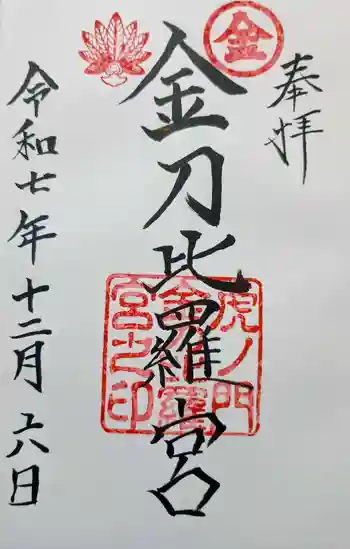 奉拝
金
金刀比羅宮
虎ノ門
金刀比羅
宮之印
令和七年十二月二十六日